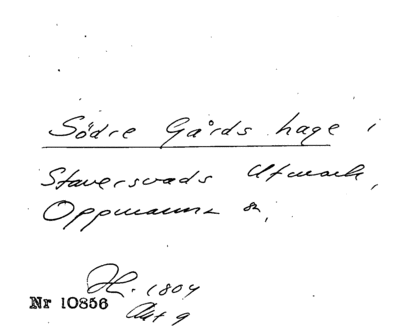 Södre Gårds hage i
Staversvads Utmark,
Oppmanna sn,
H. 1804
Nr 10856
Akt 9